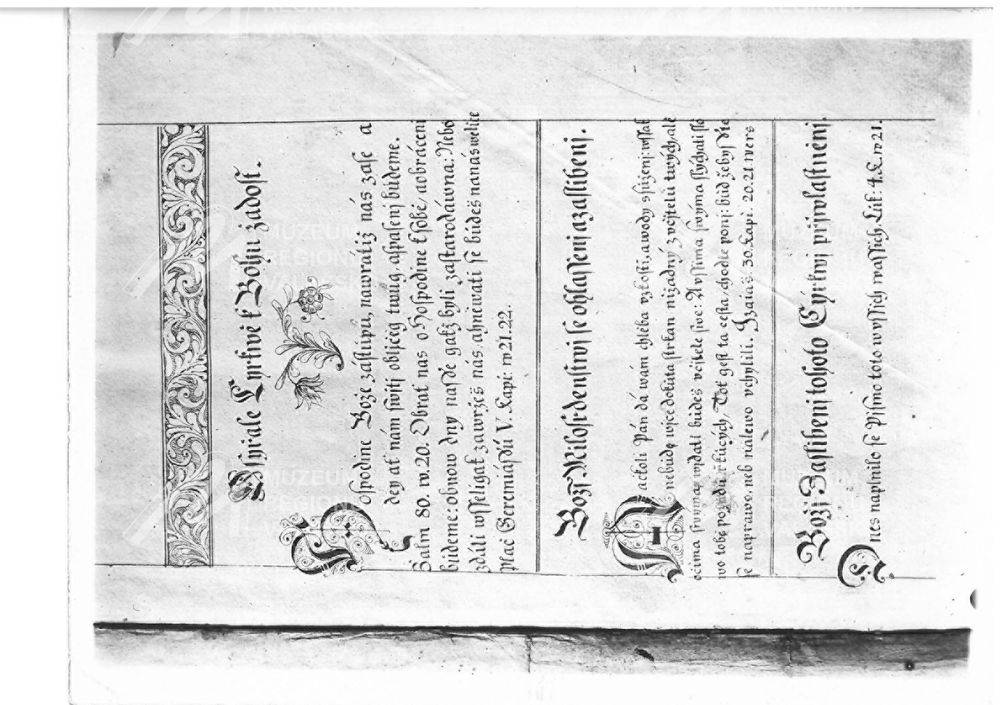 Vstýkale Cyrkwe k Bohu žadost.
Hospodine Bože zástupu, nawratiž nás zase a
dey ať nám swítj obličeg twůg, a spasenj budeme.
Žalm 80. w. 20. Obrať nas ó Hospodine k sobě, a obráceni
budeme: obnow dny naše gakž byli za starodáwna: Nebo
zdali wsseligak zawržeš nás, a hněwati se budeš na nás welice
Pláč Geremiášů V. Kapi: w 21. 22.
Božj Milosrdenstwj se ohlassenj a zaslibenj.
Ackoli Pán dá wám chléba vzkosti, a wody ssauženj: wssak
nebudau wjce dokuta strkan nižadný z včitelů twých, ale
očima swyma wjdati budeš včitele swe: A vssima swýma slychati slo
wo tobě po řkucých, Tot gest ta cesta, choďte po nj: buď žeby se
se naprawo, neb nalewo vchylili. Izaiáš 30. kapi. 20. 21 wers
Božj Zaslibenj tohoto Cyrkwi přiwlastněnj.
Dnes naplnilo se Pjsmo toto w vssjch wassich, Luk: 4. K. w 21.